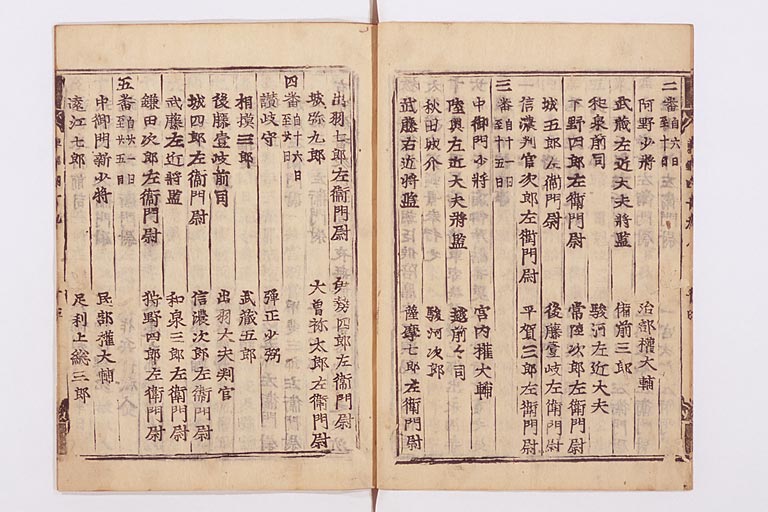 二番 自六日 至十日
阿野少將 治部權大輔
武藏左近大夫將監 備前三郎
和泉前司 駿河左近大夫
下野四郎左衞門尉 常陸次郎左衞門尉
城五郎左衞門尉 後藤壹岐左衞門尉
信濃判官次郎左衞門尉 平賀三郎左衞門尉
三番 自十一日 至十五日
中御門少將 宮內權大輔
陸奥左近大夫將監 越前々司
秋田城介 駿河次郎
武藤右近將監 薩摩七郎左衞門尉
出羽七郎左衞門尉 伊勢四郎左衞門尉
城弥九郎 大曾祢太郎左衞門尉
四番 自十六日 至廿日
讃岐守 彈正少弼
相模三郎 武藏五郎
後藤壹岐前司 出羽大夫判官
城四郎左衞門尉 信濃次郎左衞門尉
武藤左近將監 和泉三郎左衞門尉
鎌田次郎左衞門尉 狩野四郎左衞門尉
五番 自廿一日 至廿五日
中御門新少將 民部權大輔
遠江七郎 足利上総三郎